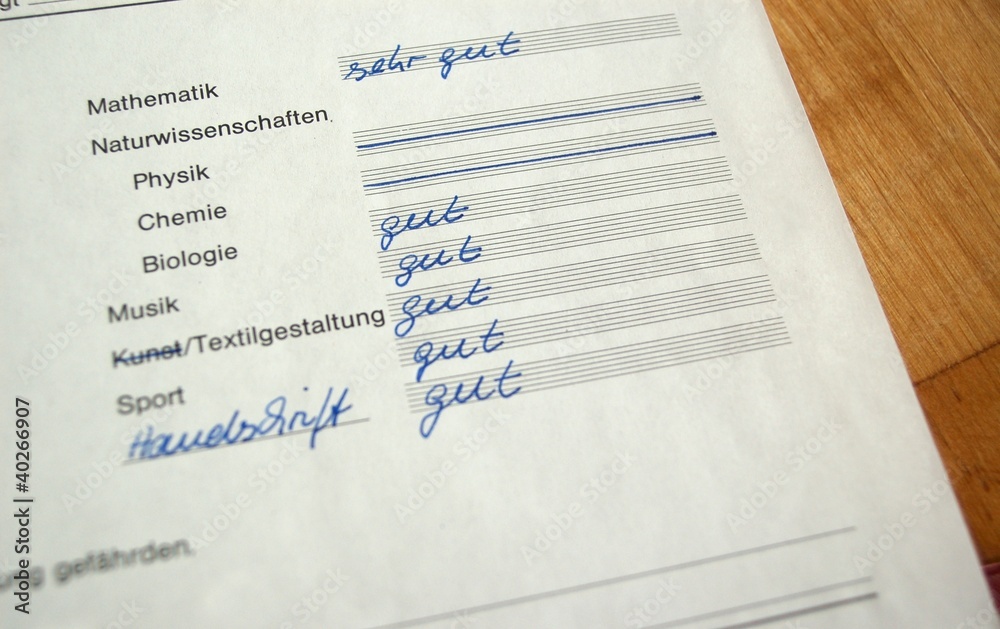 gt
Mathematik sehr gut
Naturwissenschaften.
Physik
Chemie
Biologie gut
Musik gut
Kunst/Textilgestaltung gut
Sport gut
Handschrift gut
gefährden.
Adobe Stock | #40266907